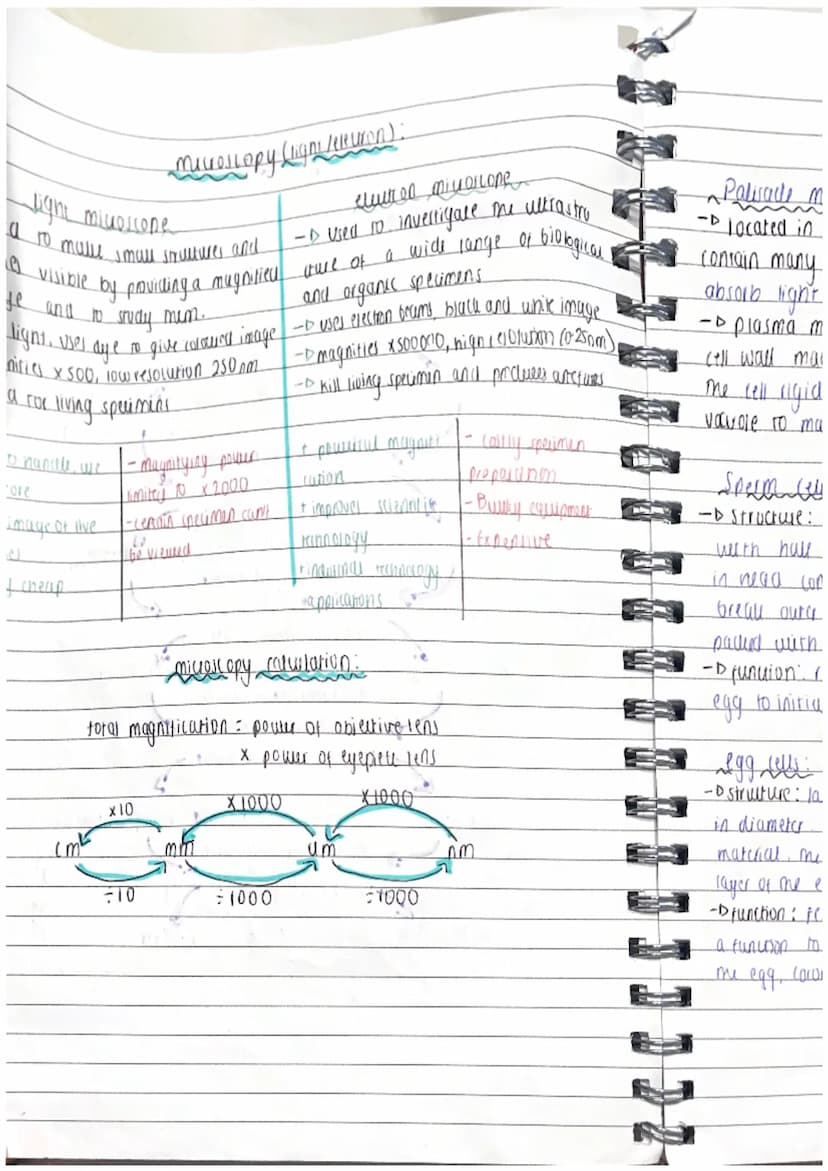 microscopy (light/electron):
light microscope
d to make small structures and
visible by providing a magnified
and to study them.
light, uses dye to give coloured image
nifies x 500, low resolution 250 nm
d for living specimins
electron microscope
-▷ used to investigate the ultrastru
cture of a wide range of biological
and organic specimens
-▷ uses electron beams, black and white image
-▷ magnifies x 500000, high resolution (0.25nm)
-▷ kill living specimen and produces
o handle, use
image of live
cheap
- magnifying power
limited to x2000
- certain specimen can't
be viewed
+ powerful magnifi
cation
+ improves scientific
technology
+ industrial technology
applications
- costly specimen
preparation
- Bulky equipment
- Expensive
microscopy calculation:
total magnification = power of objective lens
x power of eyepiece lens
x10 x1000 x1000
cm mm um nm
÷10 ÷1000 ÷1000
Palisade m
-▷ located in
contain many
absorb light
-▷ plasma m
cell wall ma
the cell rigid
vacuole to ma
Sperm cel
-▷ structure:
with half
in head con
break outer
packed with
-▷ function:
egg to initia
egg cells:
-▷ structure: la
in diameter.
material. the
layer of the e
-▷ function:
a function to
the egg,